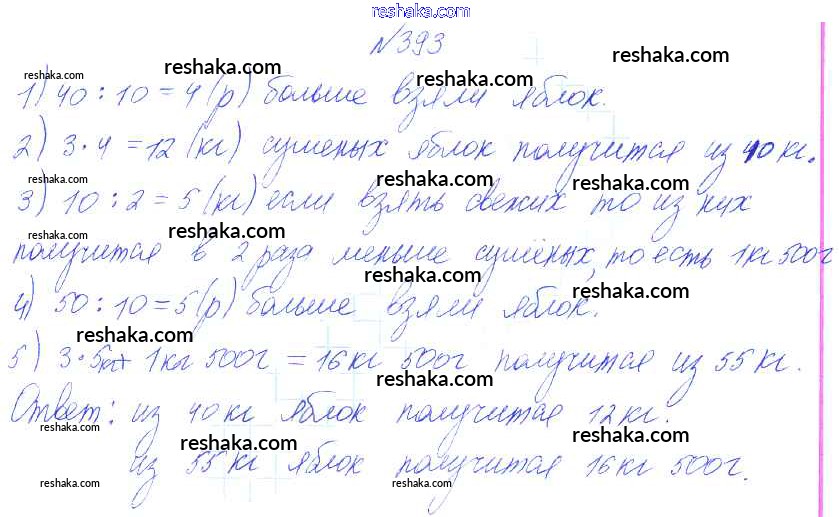 reshaka.com
№393
reshaka.com reshaka.com reshaka.com
1) 40 : 10 = 4 (р) больше взяли яблок.
reshaka.com reshaka.com
2) 3 · 4 = 12 (кг) сушеных яблок получится из 40 кг.
reshaka.com reshaka.com reshaka.com
3) 10 : 2 = 5 (кг) если взять свежих то из них
reshaka.com reshaka.com reshaka.com
получится в 2 раза меньше сушёных, то есть 1кг 500г
reshaka.com reshaka.com
4) 50 : 10 = 5 (р) больше взяли яблок.
reshaka.com reshaka.com
5) 3 · 5кг + 1кг 500г = 16кг 500г получится из 55 кг.
reshaka.com
Ответ: из 40 кг яблок получится 12 кг.
reshaka.com reshaka.com reshaka.com
из 55 кг яблок получится 16 кг 500г.
reshaka.com reshaka.com